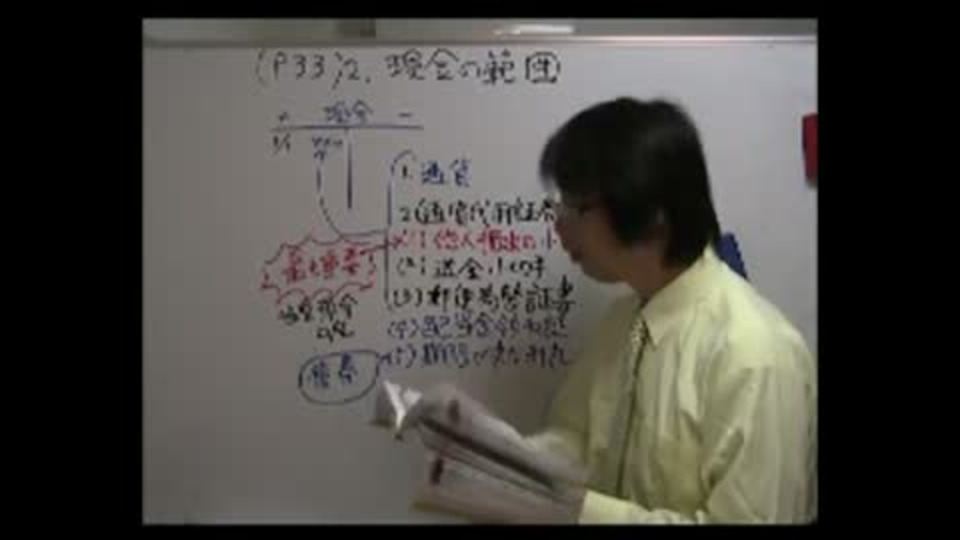 (P33) 2. 現金の範囲
+ 現金 -
1/1
1. 通貨
2. 通貨代用証券
(1) 他人振出の小
最も重要
(2) 送金小切手
(3) 郵便為替証書
(4) 配当金領収証
(5) 期限が来た利札
債券